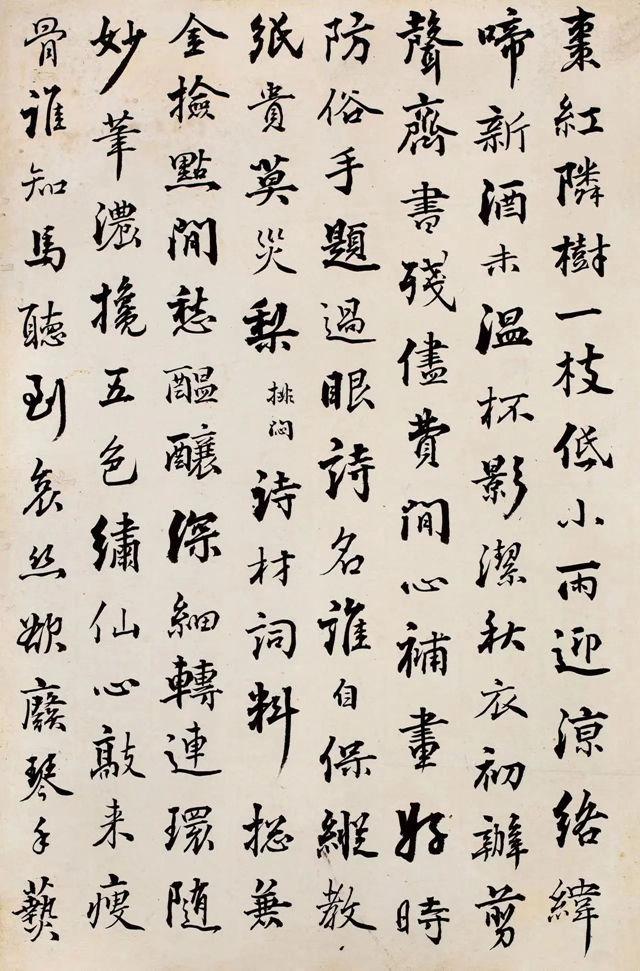 棗紅隣樹一枝低小雨迎涼絡緯
啼新酒未温杯影潔秋衣初辦剪
聲齋書殘儘費閒心補畫好時
防俗手題過眼詩名誰自保縱教
紙貴莫災梨排悶詩材詞料揔兼
金撿點閒愁醖釀深細轉連環随
妙筆濃攙五色繡仙心敲来瘦
骨誰知馬聽到哀絲欲廢琴手藝